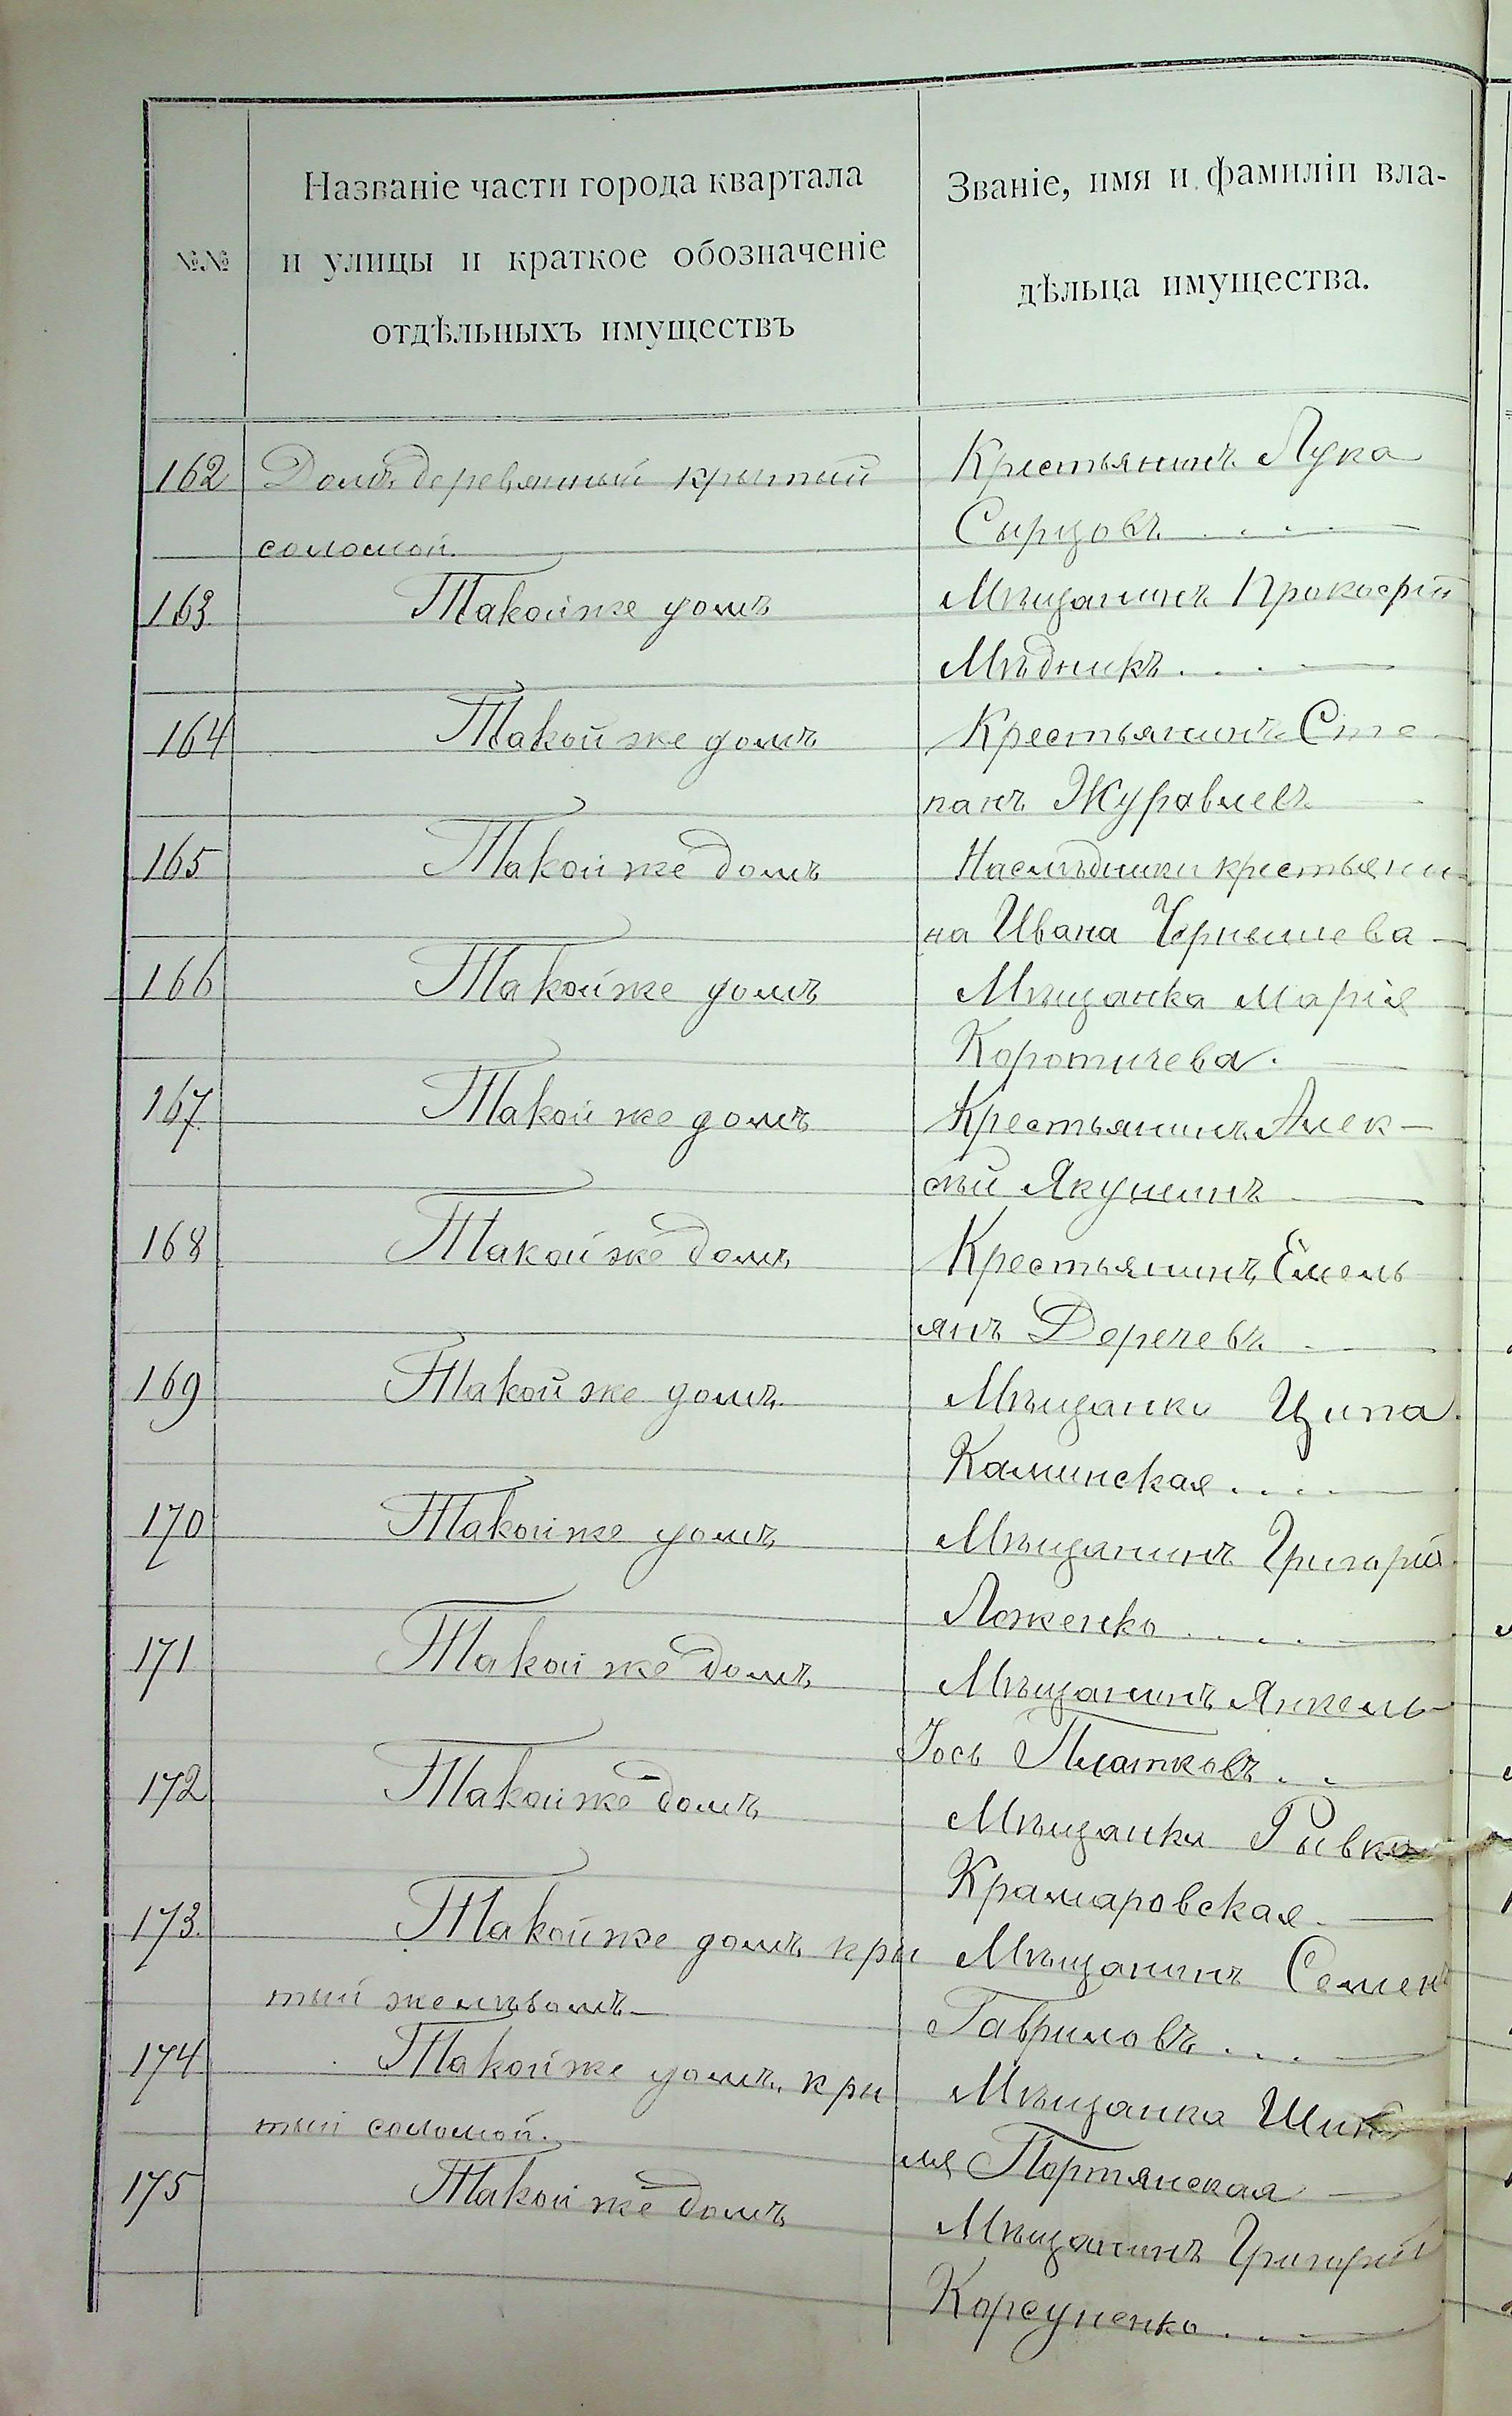 №№
Названіе части города квартала
и улицы и краткое обозначеніе
отдѣльныхъ имуществъ
Званіе, имя и фамиліи вла-
дѣльца имущества.
162 Домъ деревянный крытый
соломой.
Крестьянинъ Лука
Сырцовъ
163 Такой же домъ
Мѣщанинъ Прокофій
Мѣдникъ
164 Такой же домъ
Крестьянинъ Сте
панъ Журавлевъ
165 Такой же домъ
Наслѣдники крестьяни
на Ивана Чернышева
166 Такой же домъ
Мѣщанка Марія
Коротичева.
167. Такой же домъ
Крестьянинъ Алек-
сѣй Якушинъ
168 Такой же домъ
Крестьянинъ Емель
янъ
169 Такой же домъ
Мѣщанка Ципа
Каминская
170 Такой же домъ
Мѣщанинъ Григорій
Ложенко
171 Такой же домъ
Мѣщанинъ Янкель-
Іось Платковъ
172 Такой же домъ
Мѣщанка Рывка
Крамаровская
173. Такой же домъ кры
тый желѣзомъ
Мѣщанинъ Семенъ
Гавриловъ
174 Такой же домъ кры
тый соломой.
Мѣщанка
Портянская
175 Такой же домъ
Мѣщанинъ Григорій
Корсуненко